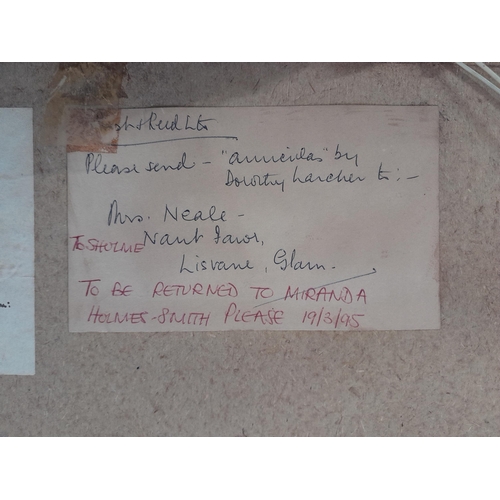 & Reed Ltd
Please send - "auriculas" by
Dorothy Larcher to :-
Mrs. Neale -
Nant Fawr,
TO SHOLME
Lisvane, Glam.
TO BE RETURNED TO MIRANDA
HOLMES-SMITH PLEASE 19/3/95